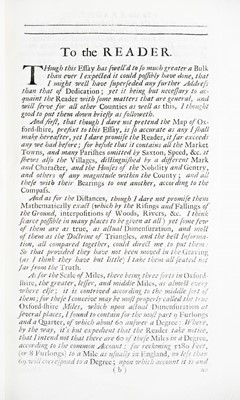 To the READER.
THough this Essay has swell'd to so much greater a Bulk
than ever I expected it could possibly have done, that
I might well have superseded any further Address
than that of Dedication; yet it being but necessary to ac-
quaint the Reader with some matters that are general, and
will serve for all other Counties as well as this, I thought
good to put them down briefly as followeth.
And first, that though I dare not pretend the Map of Ox-
ford-shire, prefixt to this Essay, is so accurate as any I shall
make hereafter, yet I dare promise the Reader, it far exceeds
any we had before; for beside that it contains all the Market
Towns, and many Parishes omitted by Saxton, Speed, &c. it
shews also the Villages, distinguished by a different Mark
and Character, and the Houses of the Nobility and Gentry,
and others of any magnitude within the County; and all
these with their Bearings to one another, according to the
Compass.
And as for the Distances, though I dare not promise them
Mathematically exact (which by the Risings and Fallings of
the Ground, interpositions of Woods, Rivers, &c. I think
scarce possible in many places to be given at all) yet some few
of them are as true, as actual Dimensuration, and most
of them as the Doctrine of Triangles, and the best Informa-
tion, all compared together, could direct me to put them:
So that provided they have not been moved in the Graving
(as I think they have but little) I take them all seated not
far from the Truth.
As for the Scale of Miles, there being three sorts in Oxford-
shire, the greater, lesser, and middle Miles, as almost every
where else; it is contrived according to the middle sort of
them; for these I conceive may be most properly called the true
Oxford-shire Miles, which upon actual Dimensuration at
several places, I found to contain for the most part 9 Furlongs
and a Quarter, of which about 60 answer a Degree: Where,
by the way, it's but expedient that the Reader take notice,
that I intend not that there are 60 of these Miles in a Degree,
according to the common Account; for reckoning 5280 Feet,
(or 8 Furlongs) to a Mile as usually in England, no less than
69 will correspond to a Degree; upon which account it is and
(b)